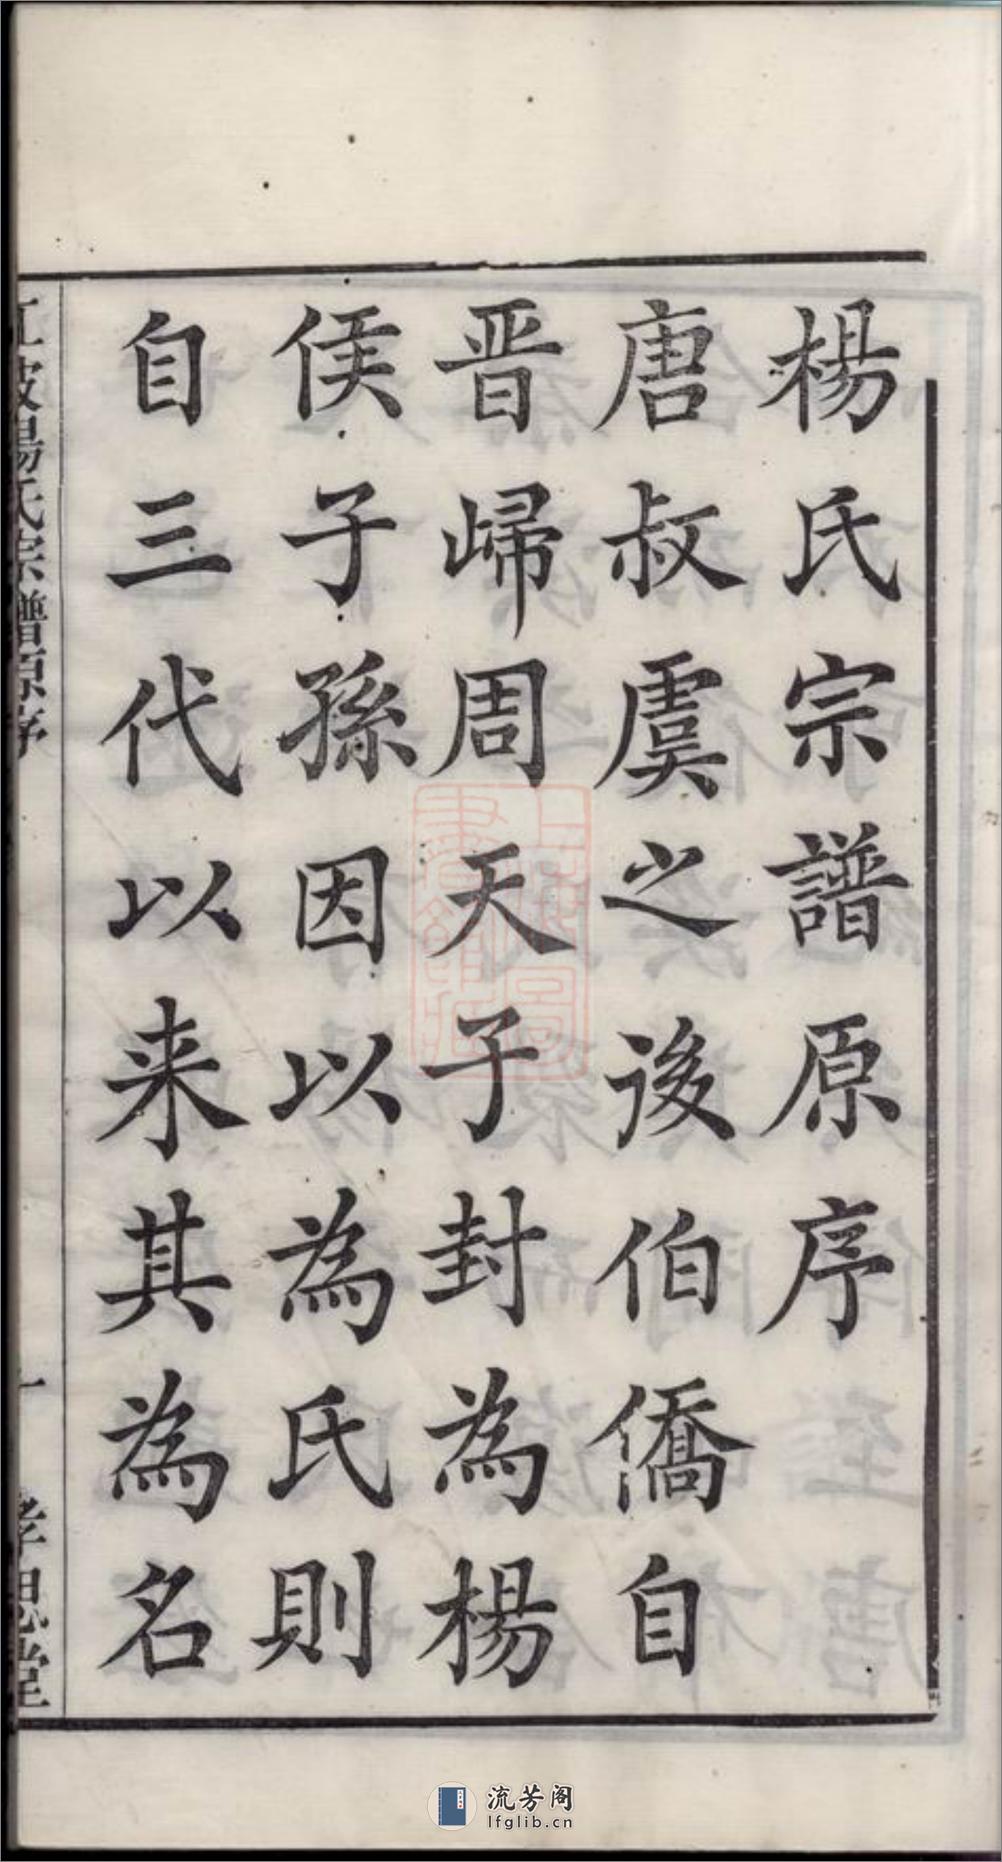 楊氏宗譜原序
唐叔虞之後伯僑自
晋歸周天子封為楊
侯子孫因以為氏則
自三代以来其為名
楊氏宗譜原序
一
孝思堂
流芳阁
lfglib.cn